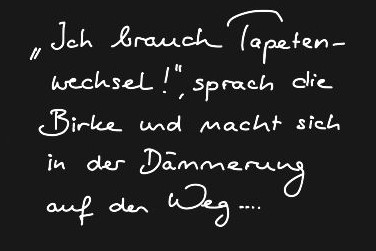 „Ich brauch Tapeten-
wechsel!", sprach die
Birke und macht sich
in der Dämmerung
auf den Weg....